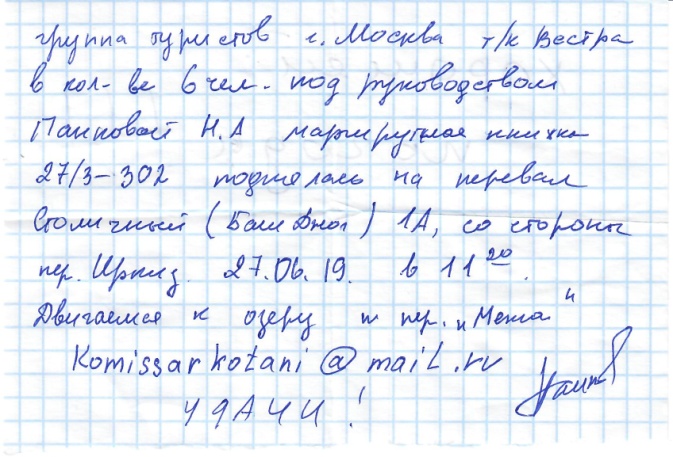 группа туристов г. Москва т/к Вестра
в кол-ве 6 чел. под руководством
Панковой Н.А маршрутная книжка
27/3-302 поднялась на перевал
Столичный (Баш Джол) 1А, со стороны
пер. Иркиз 27.06.19. в 11 20.
Двигаемся к озеру и пер. "Мена"
Komissarkotani@mail.ru
УДАЧИ!